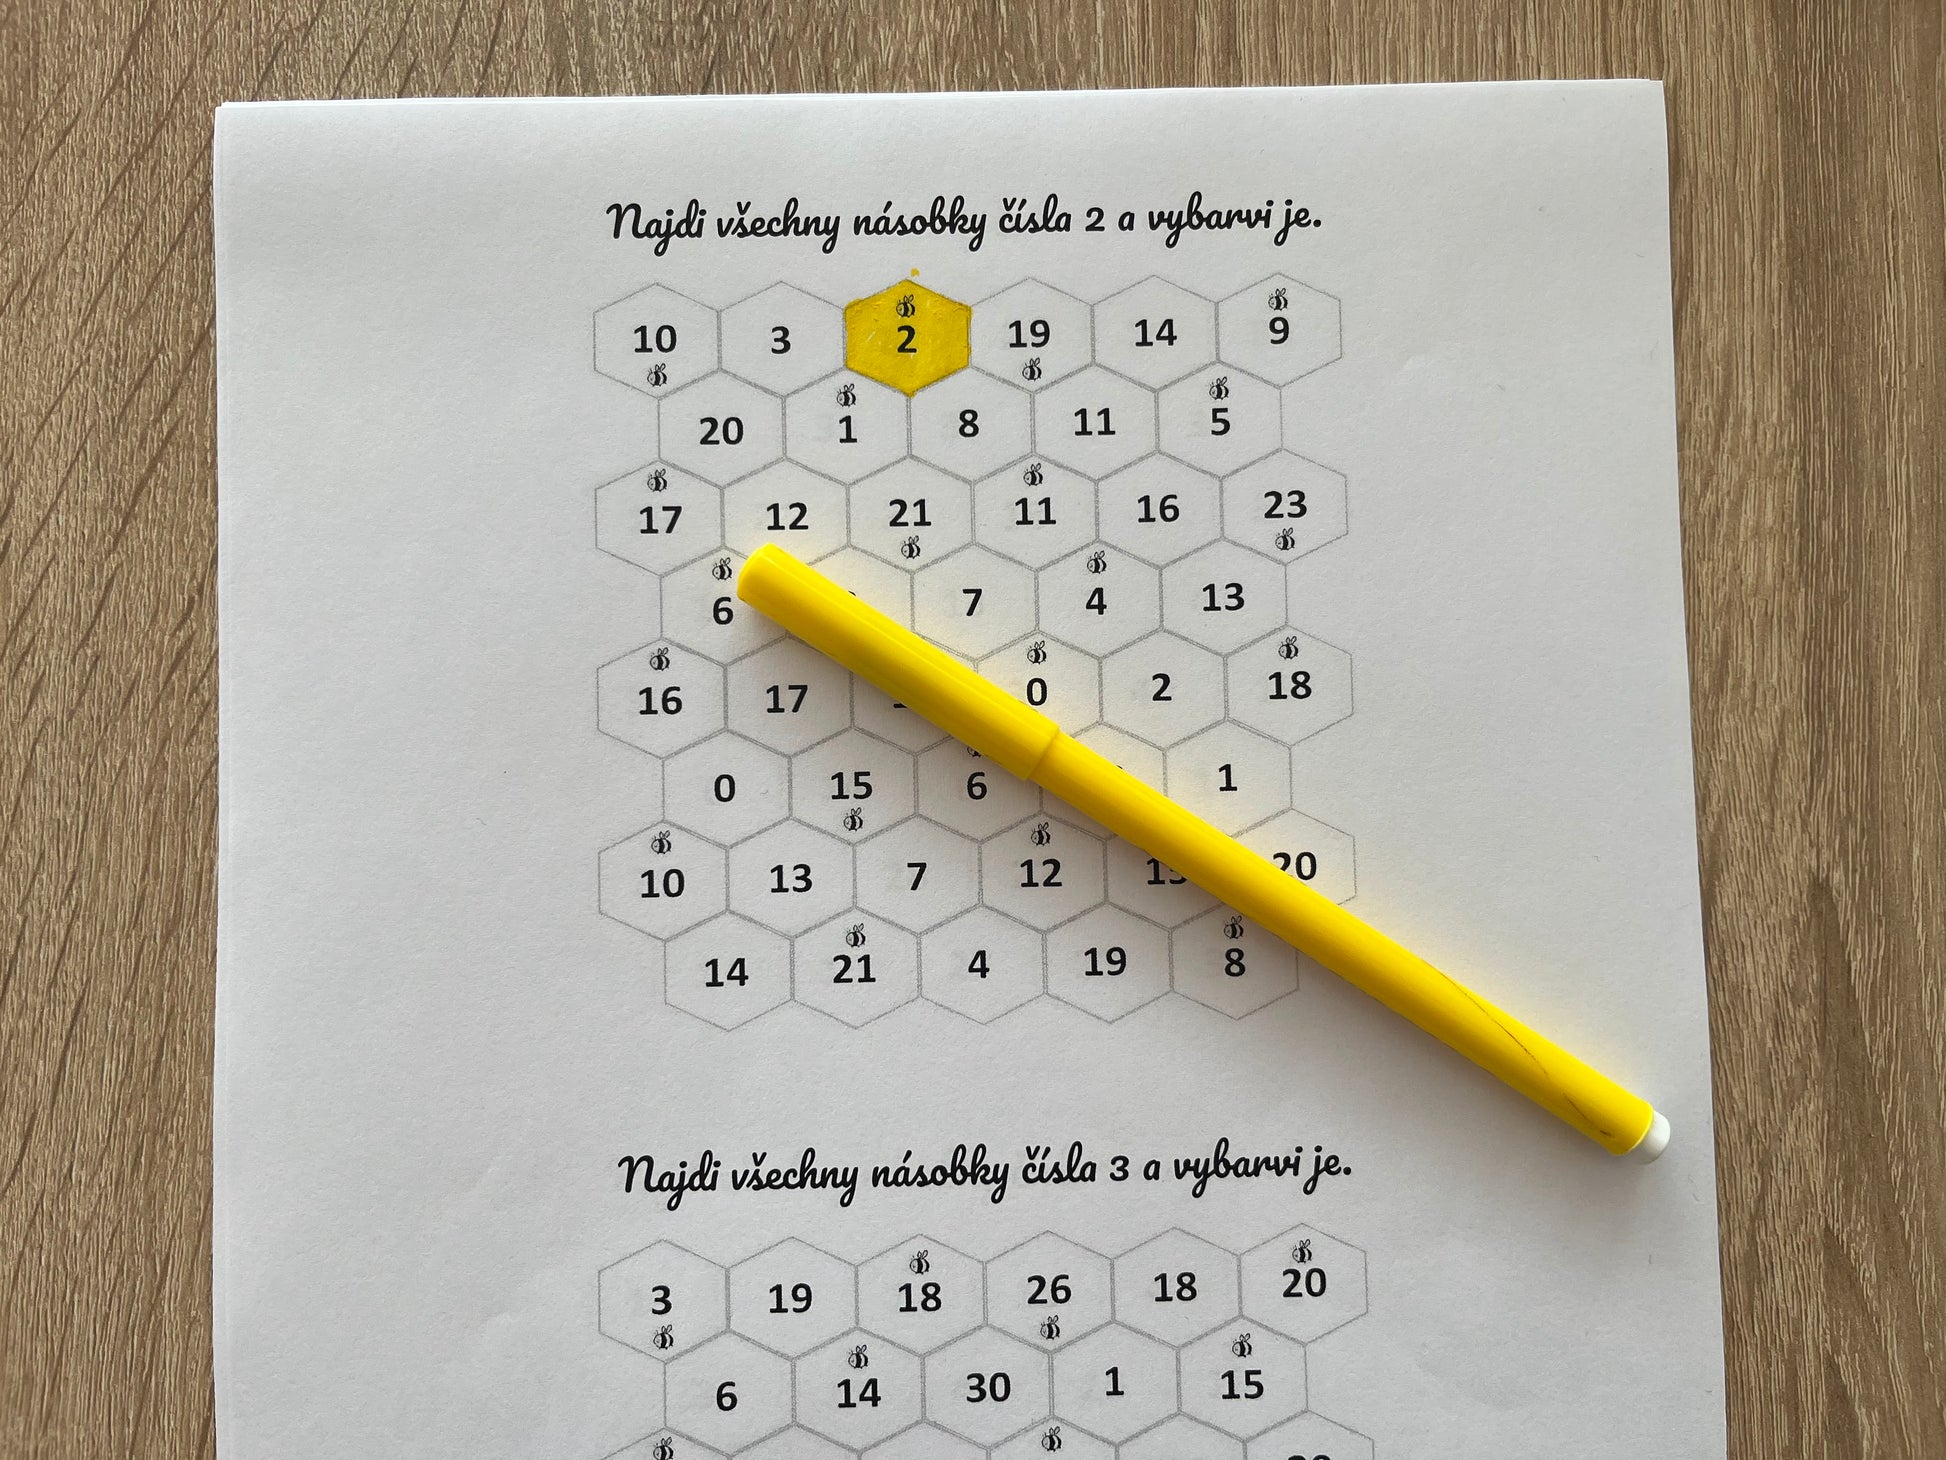 Najdi všechny násobky čísla 2 a vybarvi je.
10 3 2 19 14 9
20 1 8 11 5
17 12 21 11 16 23
6 7 4 13
16 17 0 2 18
0 15 6 1
10 13 7 12 20
14 21 4 19 8
Najdi všechny násobky čísla 3 a vybarvi je.
3 19 18 26 18 20
6 14 30 1 15